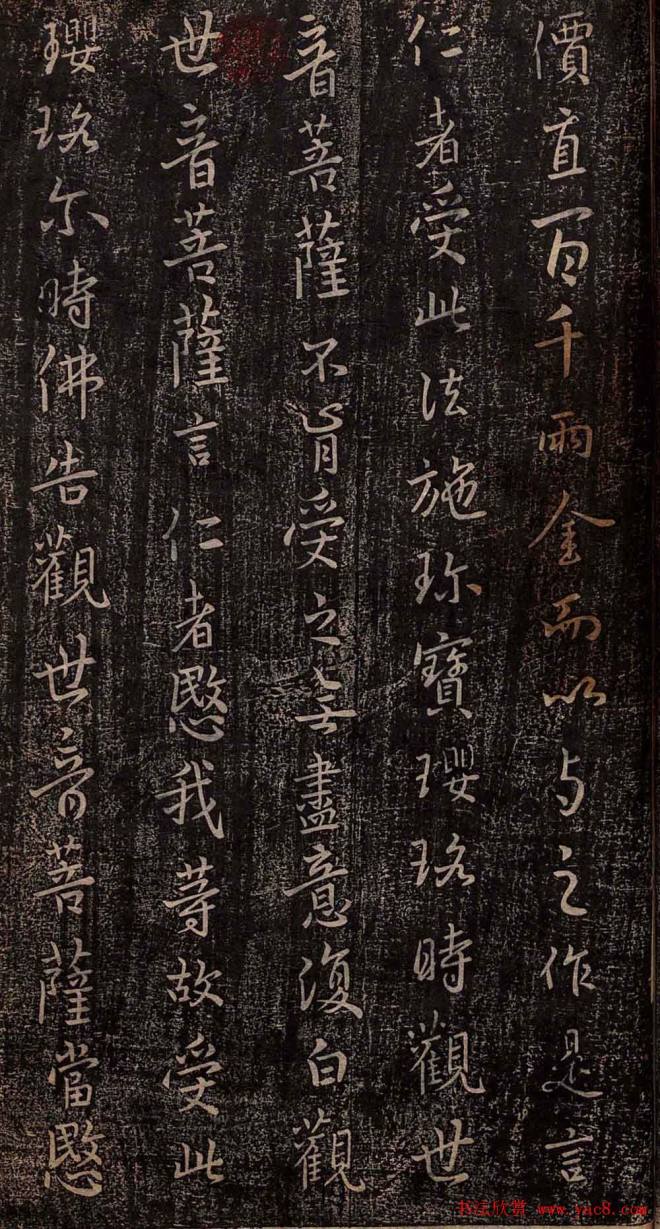 價直百千兩金而以與之作是言
仁者受此法施珎寶瓔珞時觀世
音菩薩不肯受之無盡意復白觀
世音菩薩言仁者愍我等故受此
瓔珞尒時佛告觀世音菩薩當愍
书法欣赏 www.yac8.com